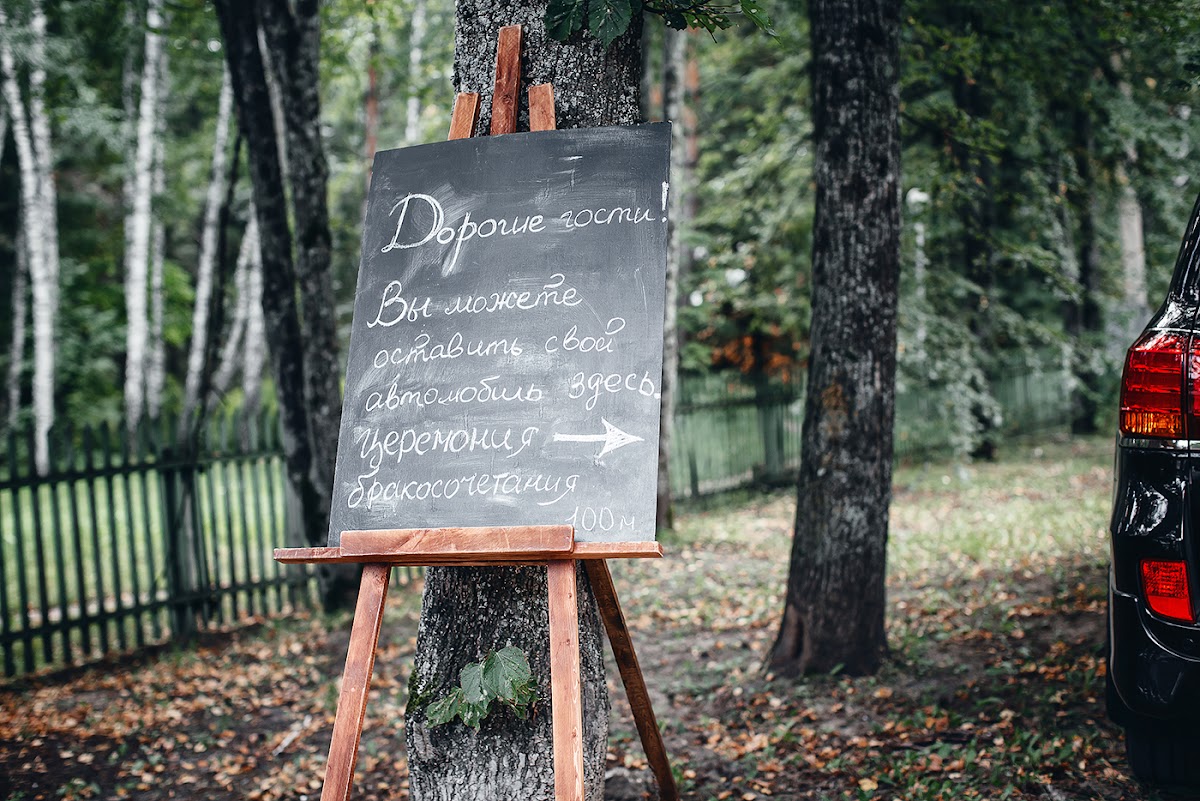 Дорогие гости!
Вы можете
оставить свой
автомобиль здесь.
Церемония →
бракосочетания
100м